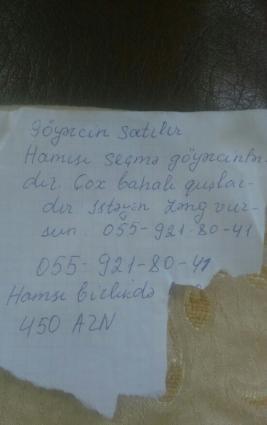 Göyərcin satılır
Hamısı seçmə göyərcinlər-
dir. Çox bahalı quşlar-
dır İstəyən zəng vur-
sun. 055-921-80-41
055-921-80-41
Hamsı birlikdə
450 AZN